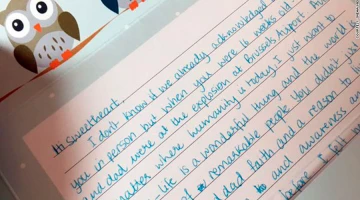 Hi Sweetheart,
I don't know if we already acknowledged
you in person but when you were 16 weeks old
and dad were at the explosion at Brussels Airport
matters where humanity is today I just want to
life is a wonderful thing and the world
of remarkable people you didn't
dad faith and a reason to
and awareness an
before I fell